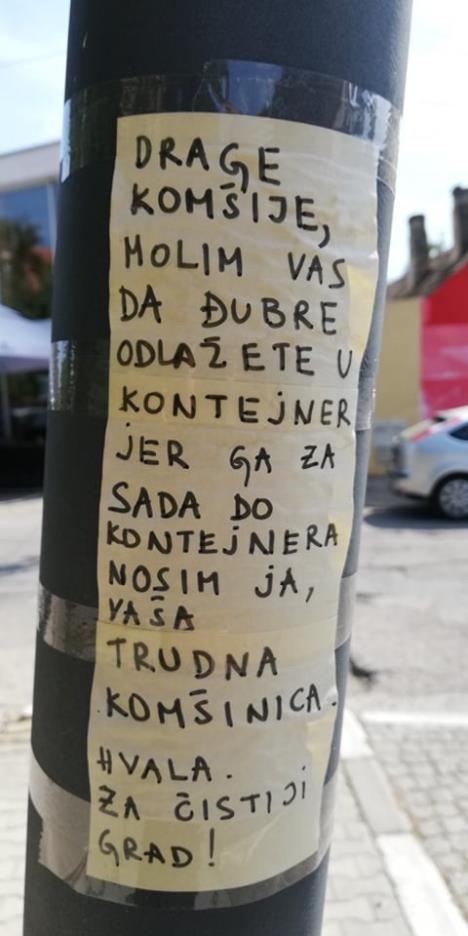 DRAGE
KOMŠIJE,
MOLIM VAS
DA ĐUBRE
ODLAŽETE U
KONTEJNER
JER GA ZA
SADA DO
KONTEJNERA
NOSIM JA,
VAŠA
TRUDNA
KOMŠINICA.
HVALA.
ZA ČISTIJI
GRAD!